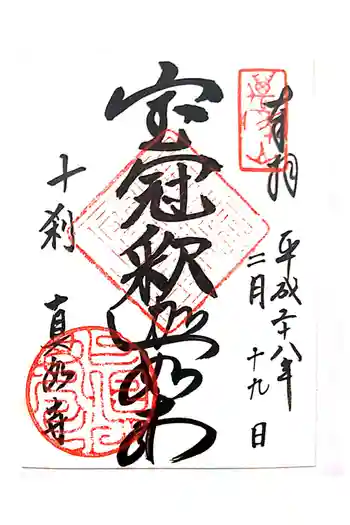 奉拝
平成二十八年
二月十九日
宝冠釈迦如来
十刹
真如寺